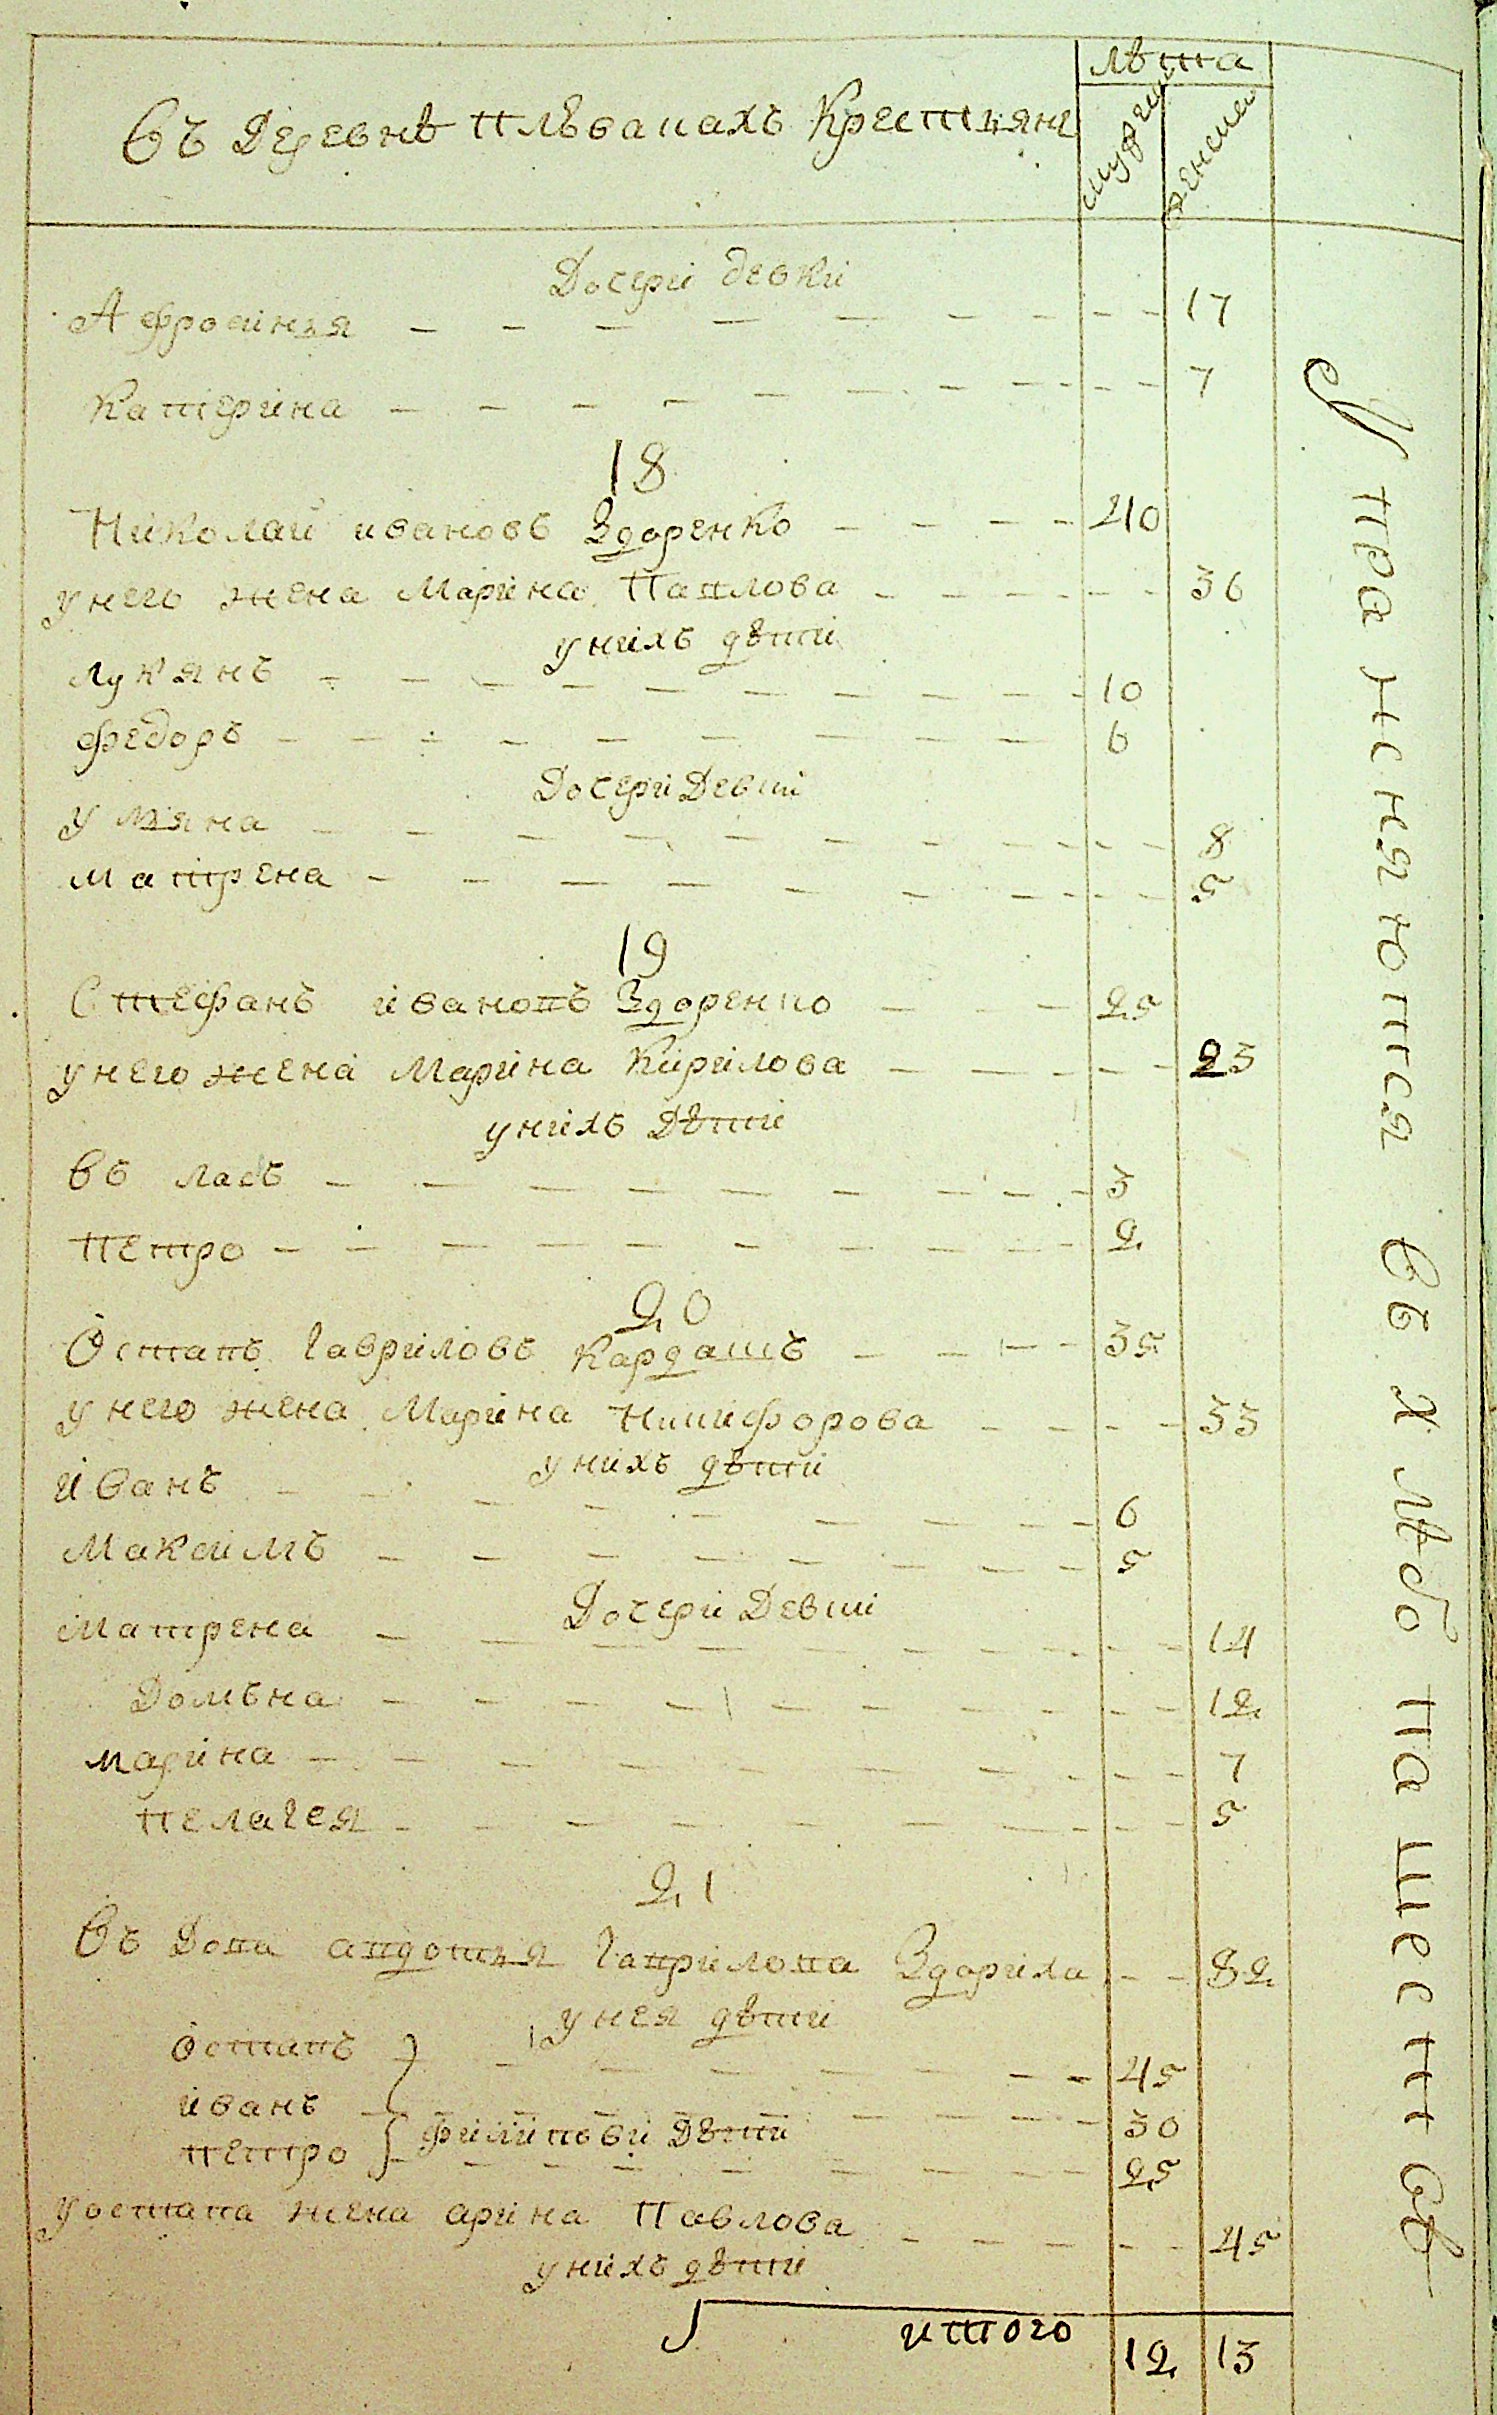 лѣта
Въ деревнѣ пльвачахъ крестьянъ
мужеи
женски
Дочери девки
Афросинья 17
Катерина 7
18
Николай ивановъ Здоренко 40
у него жена Марина Павлова 36
у нихъ дѣти
Лукянъ 10
федоръ 6
Дочери Девки
Ульяна 8
матрена 5
19
Стефанъ ивановъ Здоренко 25
у него жена Марина Кирилова 23
у нихъ дѣти
Въ ласъ 3
Петро 2
20
Остапъ Гавриловъ Кардашъ 35
у него жена Марина Никифорова 33
у нихъ дѣти
иванъ 6
Максимъ 5
Дочери Девки
Матрена 14
Домъна 12
марина 7
пелагея 5
21
Въ Дова авдотья Гаврилова Здориха 82
у нея дѣти
остапъ 45
иванъ 30
петро 25
филипови Дѣти
у остапа жена арина Павлова 45
у нихъ дѣти
итого 12 13
Упражненяются въ хлѣбопашествѣ